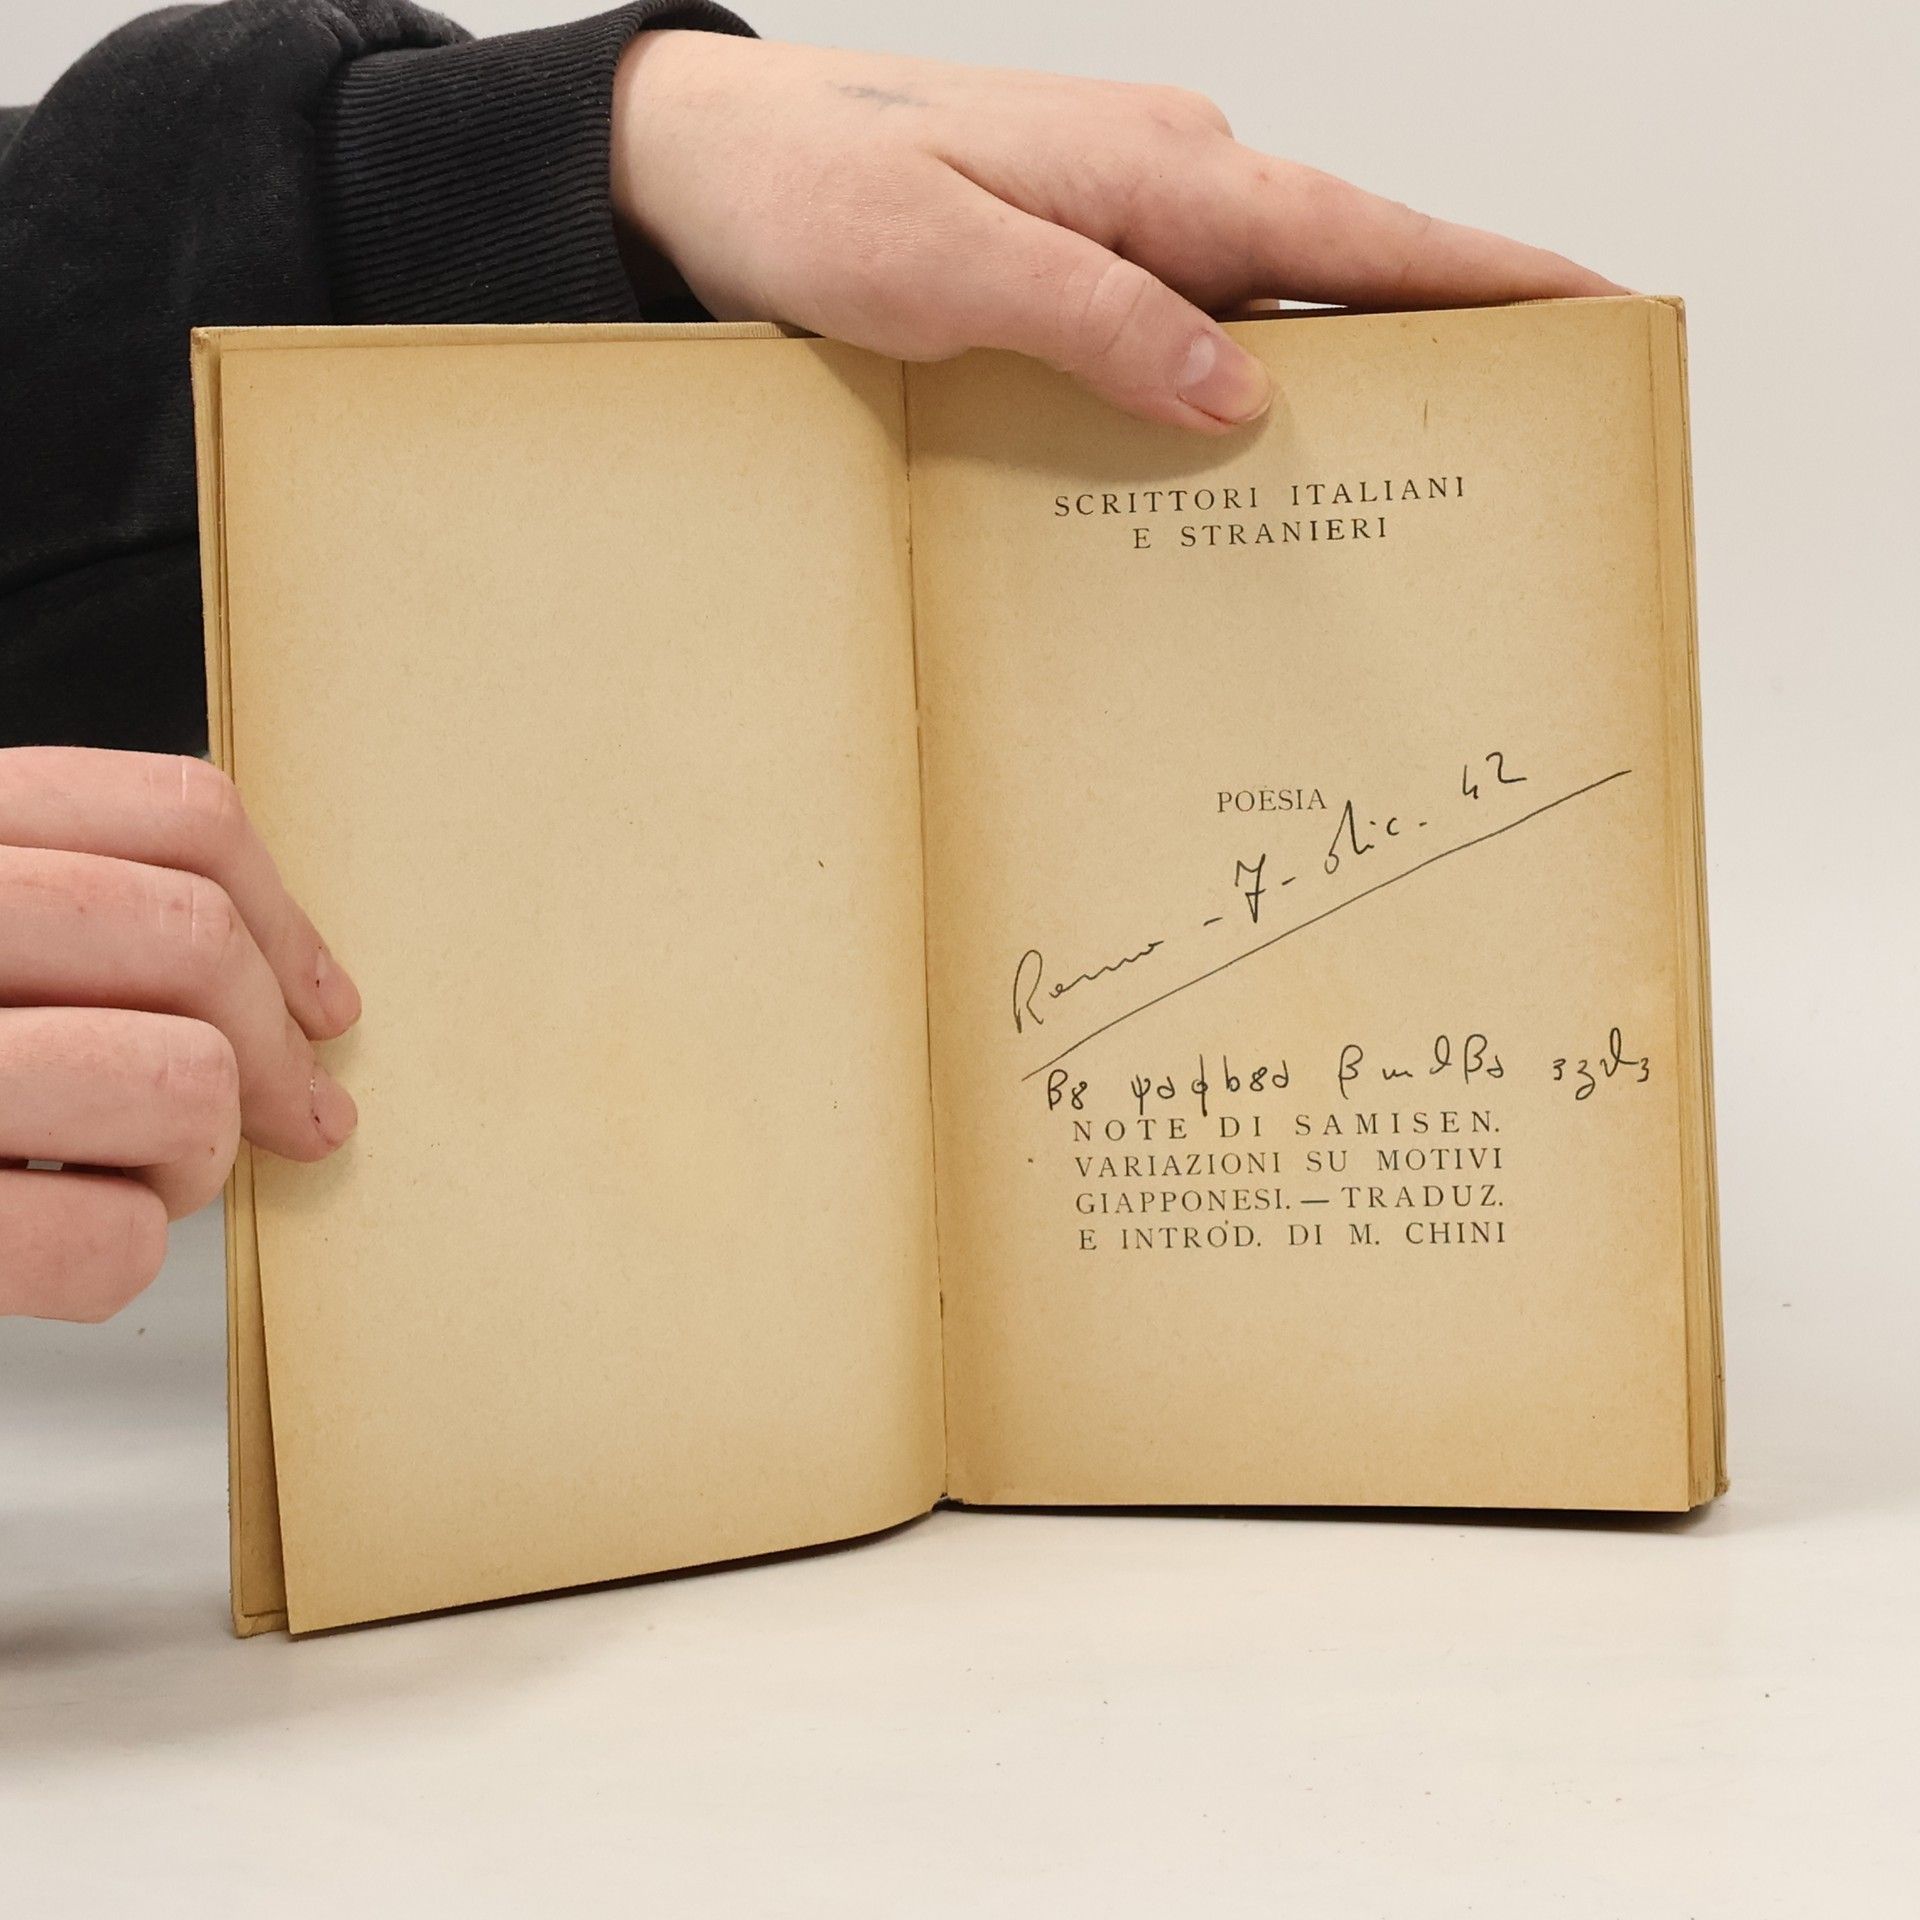 SCRITTORI ITALIANI
E STRANIERI
POESIA
Roma - 7 - dic. 42
NOTE DI SAMISEN.
VARIAZIONI SU MOTIVI
GIAPPONESI. — TRADUZ.
E INTROD. DI M. CHINI